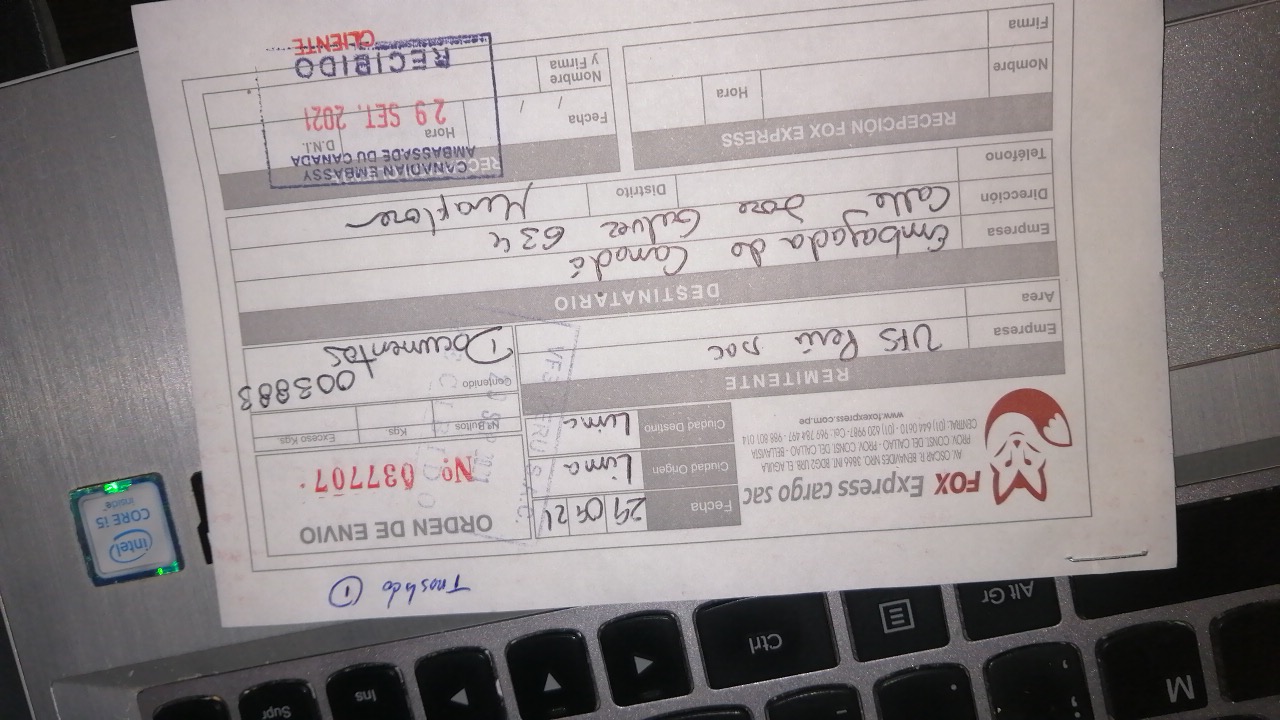 Traslado ①
FOX Express cargo sac
AV. OSCAR R. BENAVIDES NRO. 3866 INT. BDG2 URB. EL AGUILA
PROV. CONST. DEL CALLAO - PROV. CONST. DEL CALLAO - BELLAVISTA
CENTRAL: (01) 644 0610 - (01) 620 9987 - Cel.: 969 784 497 - 988 801 014
www.foxexpress.com.pe
Fecha 29 09 21
Ciudad Origen Lima
Ciudad Destino Lima
ORDEN DE ENVIO
Nº 037707
Nº Bultos Kgs Exceso Kgs
Contenido 003883
Documentos
REMITENTE
Empresa VFS Perú sac
Area
DESTINATARIO
Empresa Embajada de Canadá
Dirección Calle Jose Galvez 634
Distrito Miraflores
Teléfono
RECEPCIÓN FOX EXPRESS
Nombre
Hora
Firma
CANADIAN EMBASSY
AMBASSADE DU CANADA
29 SET. 2021
RECIBIDO
CLIENTE
D.N.I.
Fecha / /
Hora
Nombre
y Firma
intel
CORE i5
inside
Supr
Ins
Ctrl
Alt Gr
M